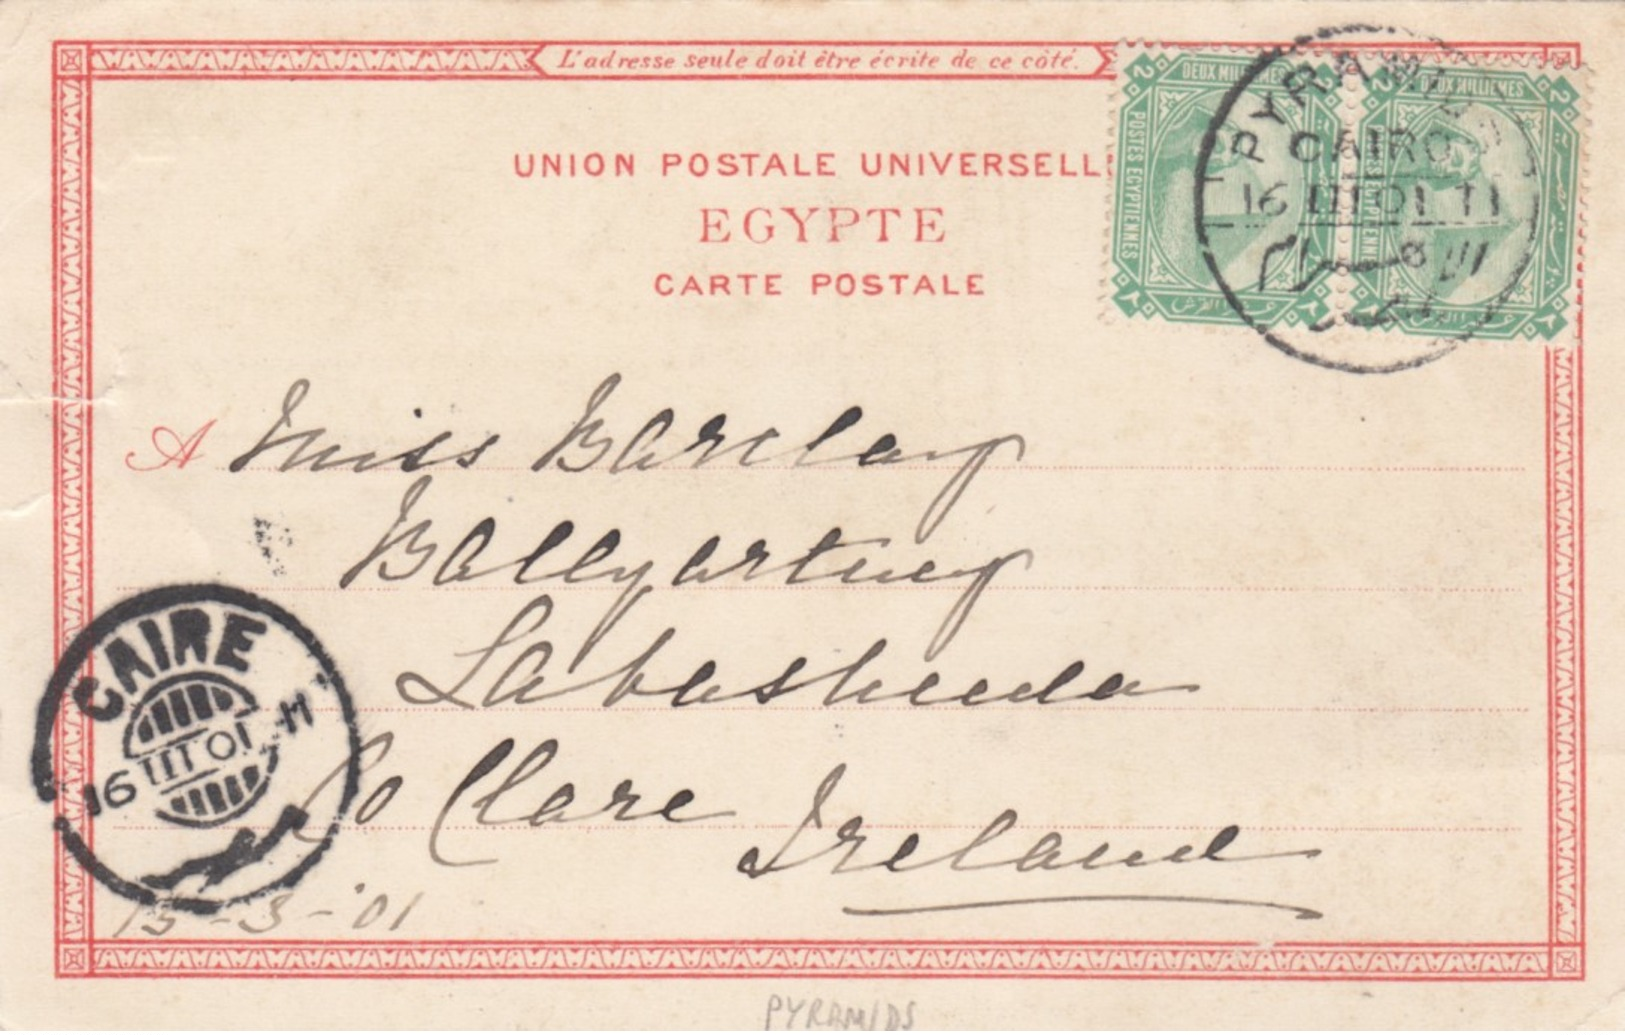 L'adresse seule doit être écrite de ce côté.
UNION POSTALE UNIVERSELLE
EGYPTE
CARTE POSTALE
2 DEUX MILLIEMES 2
POSTES EGYPTIENNES
2 DEUX MILLIEMES 2
POSTES EGYPTIENNES
PYRAMIDS
CAIRO
16 III 01 T1
A Miss Barclay
Ballyartney
Labasheeda
Co Clare
Ireland
CAIRE
16 III 01
15-3-'01
PYRAMIDS